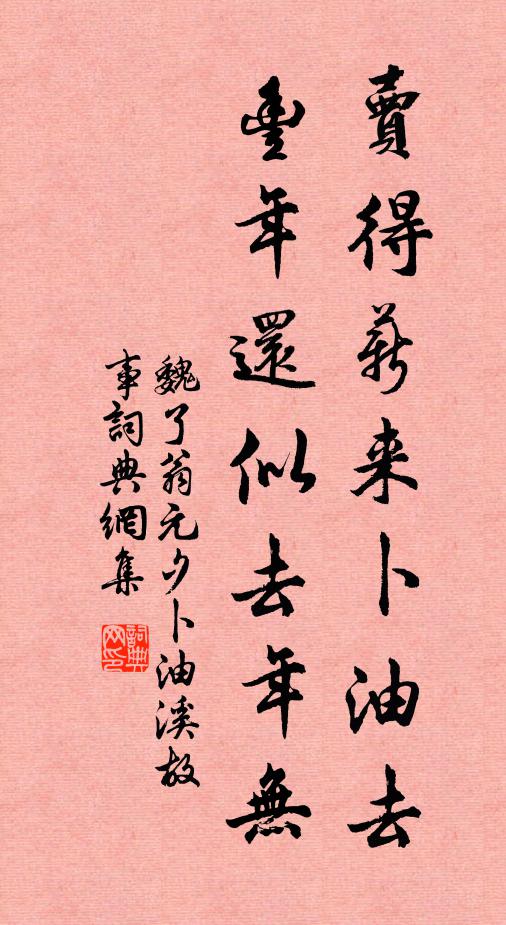 賣得薪来卜油去
豐年還似去年無
魏了翁元夕卜油溪故
事詞典網集
詞典网印